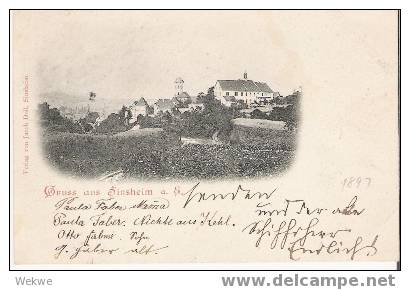 Verlag von Jacob Doll, Sinsheim.
Gruss aus Sinsheim a. E.
senden
und der alte
Endlich
Paula Faber Mama
Paula Faber. Nichte aus Kehl.
Otto Faber. Sohn
g. Faber alt.
1897
Wekwe
delcampe.net